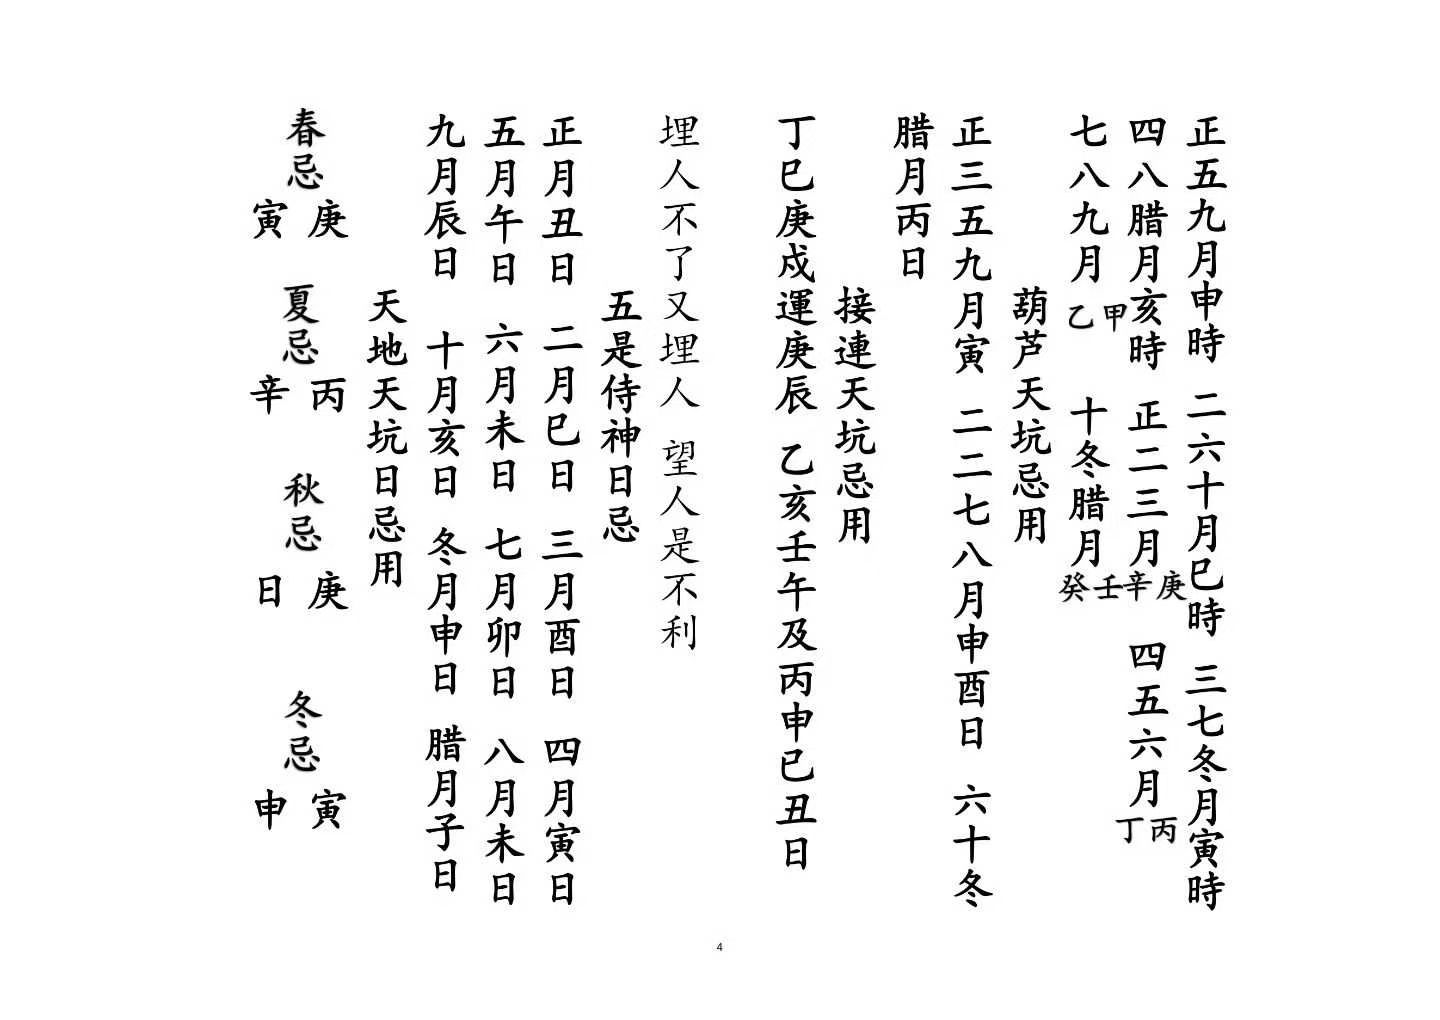 正五九月申時 二六十月巳時 三七冬月寅時
四八腊月亥時 正二三月庚辛 四五六月丙丁
七八九月甲乙 十冬腊月壬癸
葫芦天坑忌用
正三五九月寅 二二七八月申酉日 六十冬
腊月丙日
接連天坑忌用
丁巳庚戍運庚辰 乙亥壬午及丙申巳丑日
埋人不了又埋人 望人是不利
五是侍神日忌
正月丑日 二月巳日 三月酉日 四月寅日
五月午日 六月未日 七月卯日 八月未日
九月辰日 十月亥日 冬月申日 腊月子日
天地天坑日忌用
春忌庚寅 夏忌丙辛 秋忌庚日 冬忌寅申
4